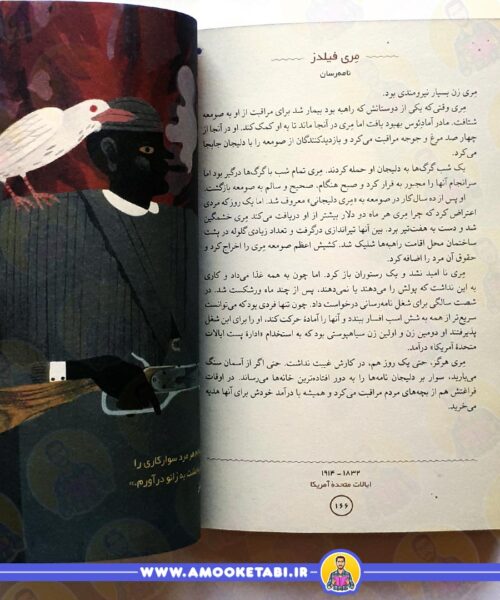 مِری فیلدز
نامه‌رسان
مِری زن بسیار نیرومندی بود.
مِری وقتی‌که یکی از دوستانش که راهبه بود بیمار شد برای مراقبت از او به صومعه
شتافت. مادر آمادئوس بهبود یافت اما مِری در آنجا ماند تا به او کمک کند. او در آنجا از
چهار صد مرغ و جوجه مراقبت می‌کرد و بازدیدکنندگان از صومعه را با دلیجان جابجا
می‌کرد.
یک شب گرگ‌ها به دلیجان او حمله کردند. مِری تمام شب با گرگ‌ها درگیر بود اما
سرانجام آنها را مجبور به فرار کرد و صبح هنگام، صحیح و سالم به صومعه بازگشت.
او پس از ده سال‌کار در صومعه به «مِری دلیجانی» معروف شد. اما یک روزه مردی
اعتراض کرد که چرا مِری هر ماه دو دلار بیشتر از او دریافت می‌کند. مِری خشمگین
شد و دست به هفت‌تیر برد. بین آنها تیراندازی درگرفت و تعداد زیادی گلوله در پشت
ساختمان محل اقامت راهبه‌ها شلیک شد. کشیش اعظم صومعه مِری را اخراج کرد و
حقوق آن مرد را اضافه کرد.
مِری نا امید نشد و یک رستوران باز کرد. اما چون به همه غذا می‌داد و کاری
به این نداشت که پولش را می‌دهند یا نمی‌دهند، پس از چند ماه ورشکست شد. در
شصت سالگی برای شغل نامه‌رسانی درخواست داد. چون تنها فردی بود که می‌توانست
سریع‌تر از همه به شش اسب افسار ببندد و آنها را آمادهٔ حرکت کند، او را برای این شغل
پذیرفتند. او دومین زن و اولین زن سیاهپوستی بود که به استخدام «ادارهٔ پست ایالات
متحدهٔ آمریکا» درآمد.
مِری هرگز، حتی یک روز هم، در کارش غیبت نداشت. حتی اگر از آسمان سنگ
می‌بارید، سوار بر دلیجان نامه‌ها را به دور افتاده‌ترین خانه‌ها می‌رساند. در اوقات
فراغتش هم از بچه‌های مردم مراقبت می‌کرد و همیشه با درآمد خودش برای آنها هدیه
می‌خرید.
۱۸۳۲ - ۱۹۱۴
ایالات متحدهٔ آمریکا
۱۶۶
هر مرد سوارکاری را
به زانو درآورم.»
WWW.AMOOKETABI.IR